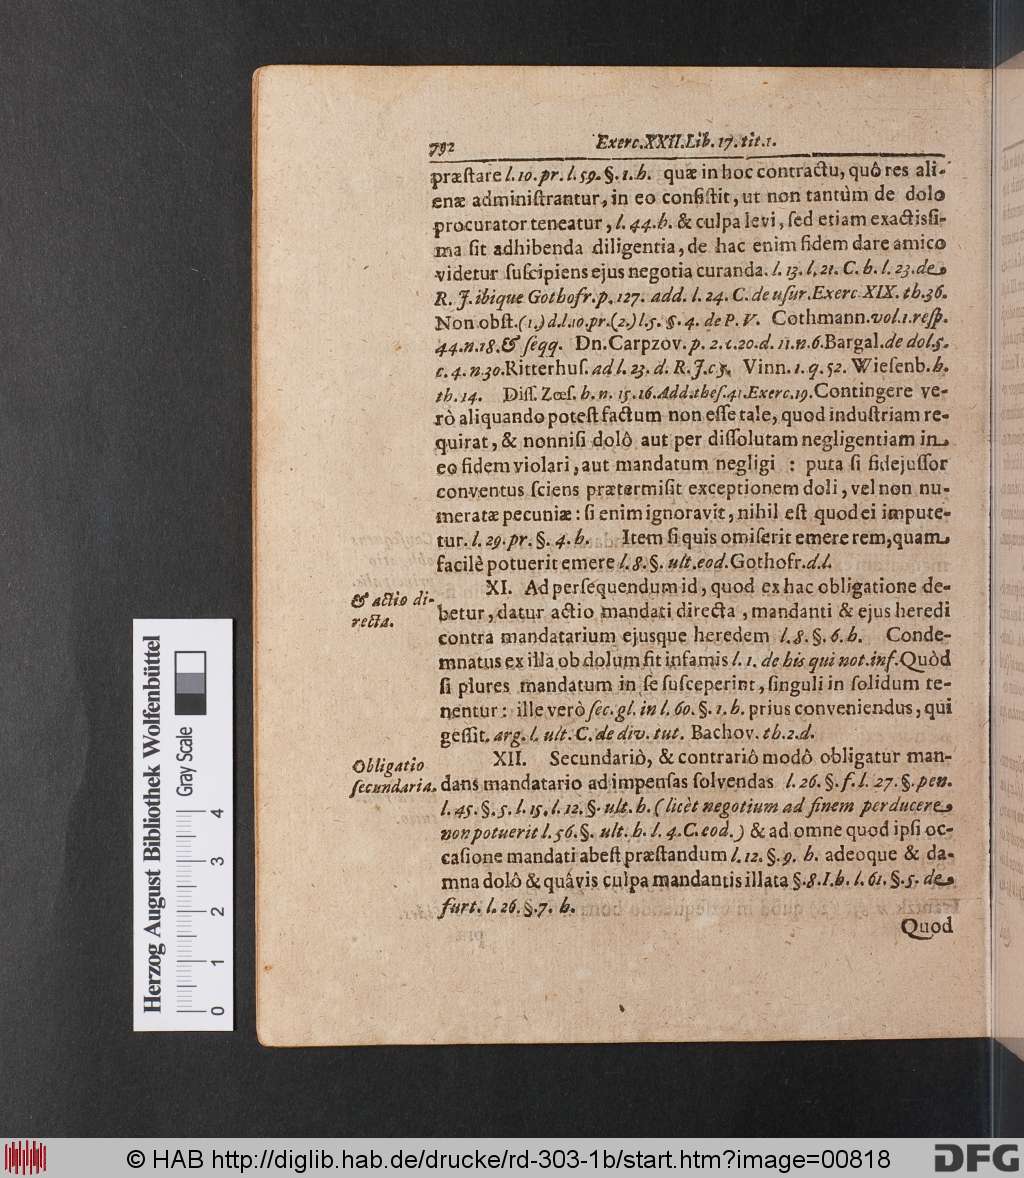 792 Exerc. XXII. Lib. 17. tit. 1.
præſtare l. 10. pr. l. 59. §. 1. h. quæ in hoc contractu, quô res ali-
enæ adminiſtrantur, in eo conſiſtit, ut non tantùm de dolo
procurator teneatur, l. 44. h. & culpa levi, ſed etiam exactiſſi-
ma ſit adhibenda diligentia, de hac enim fidem dare amico
videtur ſuſcipiens ejus negotia curanda. l. 13. l. 21. C. h. l. 23. de
R. J. ibique Gothofr. p. 127. add. l. 24. C. de uſur. Exerc XIX. th. 36.
Non obſt. (1.) d. l. 10. pr. (2.) l. 5. §. 4. de P. V. Cothmann. vol. 1. reſp.
44. n. 18. & ſeqq. Dn. Carpzov. p. 2. c. 20. d. 11. n. 6. Bargal. de dol. 5.
c. 4. n. 30. Ritterhuſ. ad l. 23. d. R. J. c 5. Vinn. 1. q. 52. Wieſenb. h.
th. 14. Diſſ. Zœſ. h. n. 15. 16. Add. theſ. 41. Exerc. 19. Contingere ve-
rò aliquando poteſt factum non eſſe tale, quod induſtriam re-
quirat, & nonniſi dolô aut per diſſolutam negligentiam in
eo fidem violari, aut mandatum negligi : puta ſi fidejuſſor
conventus ſciens prætermiſit exceptionem doli, vel non nu-
meratæ pecuniæ: ſi enim ignoravit, nihil eſt quod ei impute-
tur. l. 29. pr. §. 4. h. Item ſi quis omiſerit emere rem, quam
facilè potuerit emere l. 8. §. ult. eod. Gothofr. d. l.
& actio di-
recta.
XI. Ad perſequendum id, quod ex hac obligatione de-
betur, datur actio mandati directa, mandanti & ejus heredi
contra mandatarium ejusque heredem l. 8. §. 6. h. Conde-
mnatus ex illa ob dolum fit infamis l. 1. de his qui not. inf. Quòd
ſi plures mandatum in ſe ſuſceperint, ſinguli in ſolidum te-
nentur: ille verò ſec. gl. in l. 60. §. 1. h. prius conveniendus, qui
geſſit. arg. l. ult. C. de div. tut. Bachov. th. 2. d.
Obligatio
ſecundaria.
XII. Secundariò, & contrariô modô obligatur man-
dans mandatario ad impenſas ſolvendas l. 26. §. f. l. 27. §. pen.
l. 45. §. 5. l. 15. l. 12. §. ult. h. (licèt negotium ad finem perducere
non potuerit l. 56. §. ult. h. l. 4. C. eod.) & ad omne quod ipſi oc-
caſione mandati abeſt præſtandum l. 12. §. 9. h. adeoque & da-
mna dolô & quávis culpa mandantis illata §. 8. I. h. l. 61. §. 5. de
furt. l. 26. §. 7. h.
Quod
Herzog August Bibliothek Wolfenbüttel
Gray Scale
0 1 2 3 4
© HAB http://diglib.hab.de/drucke/rd-303-1b/start.htm?image=00818
DFG